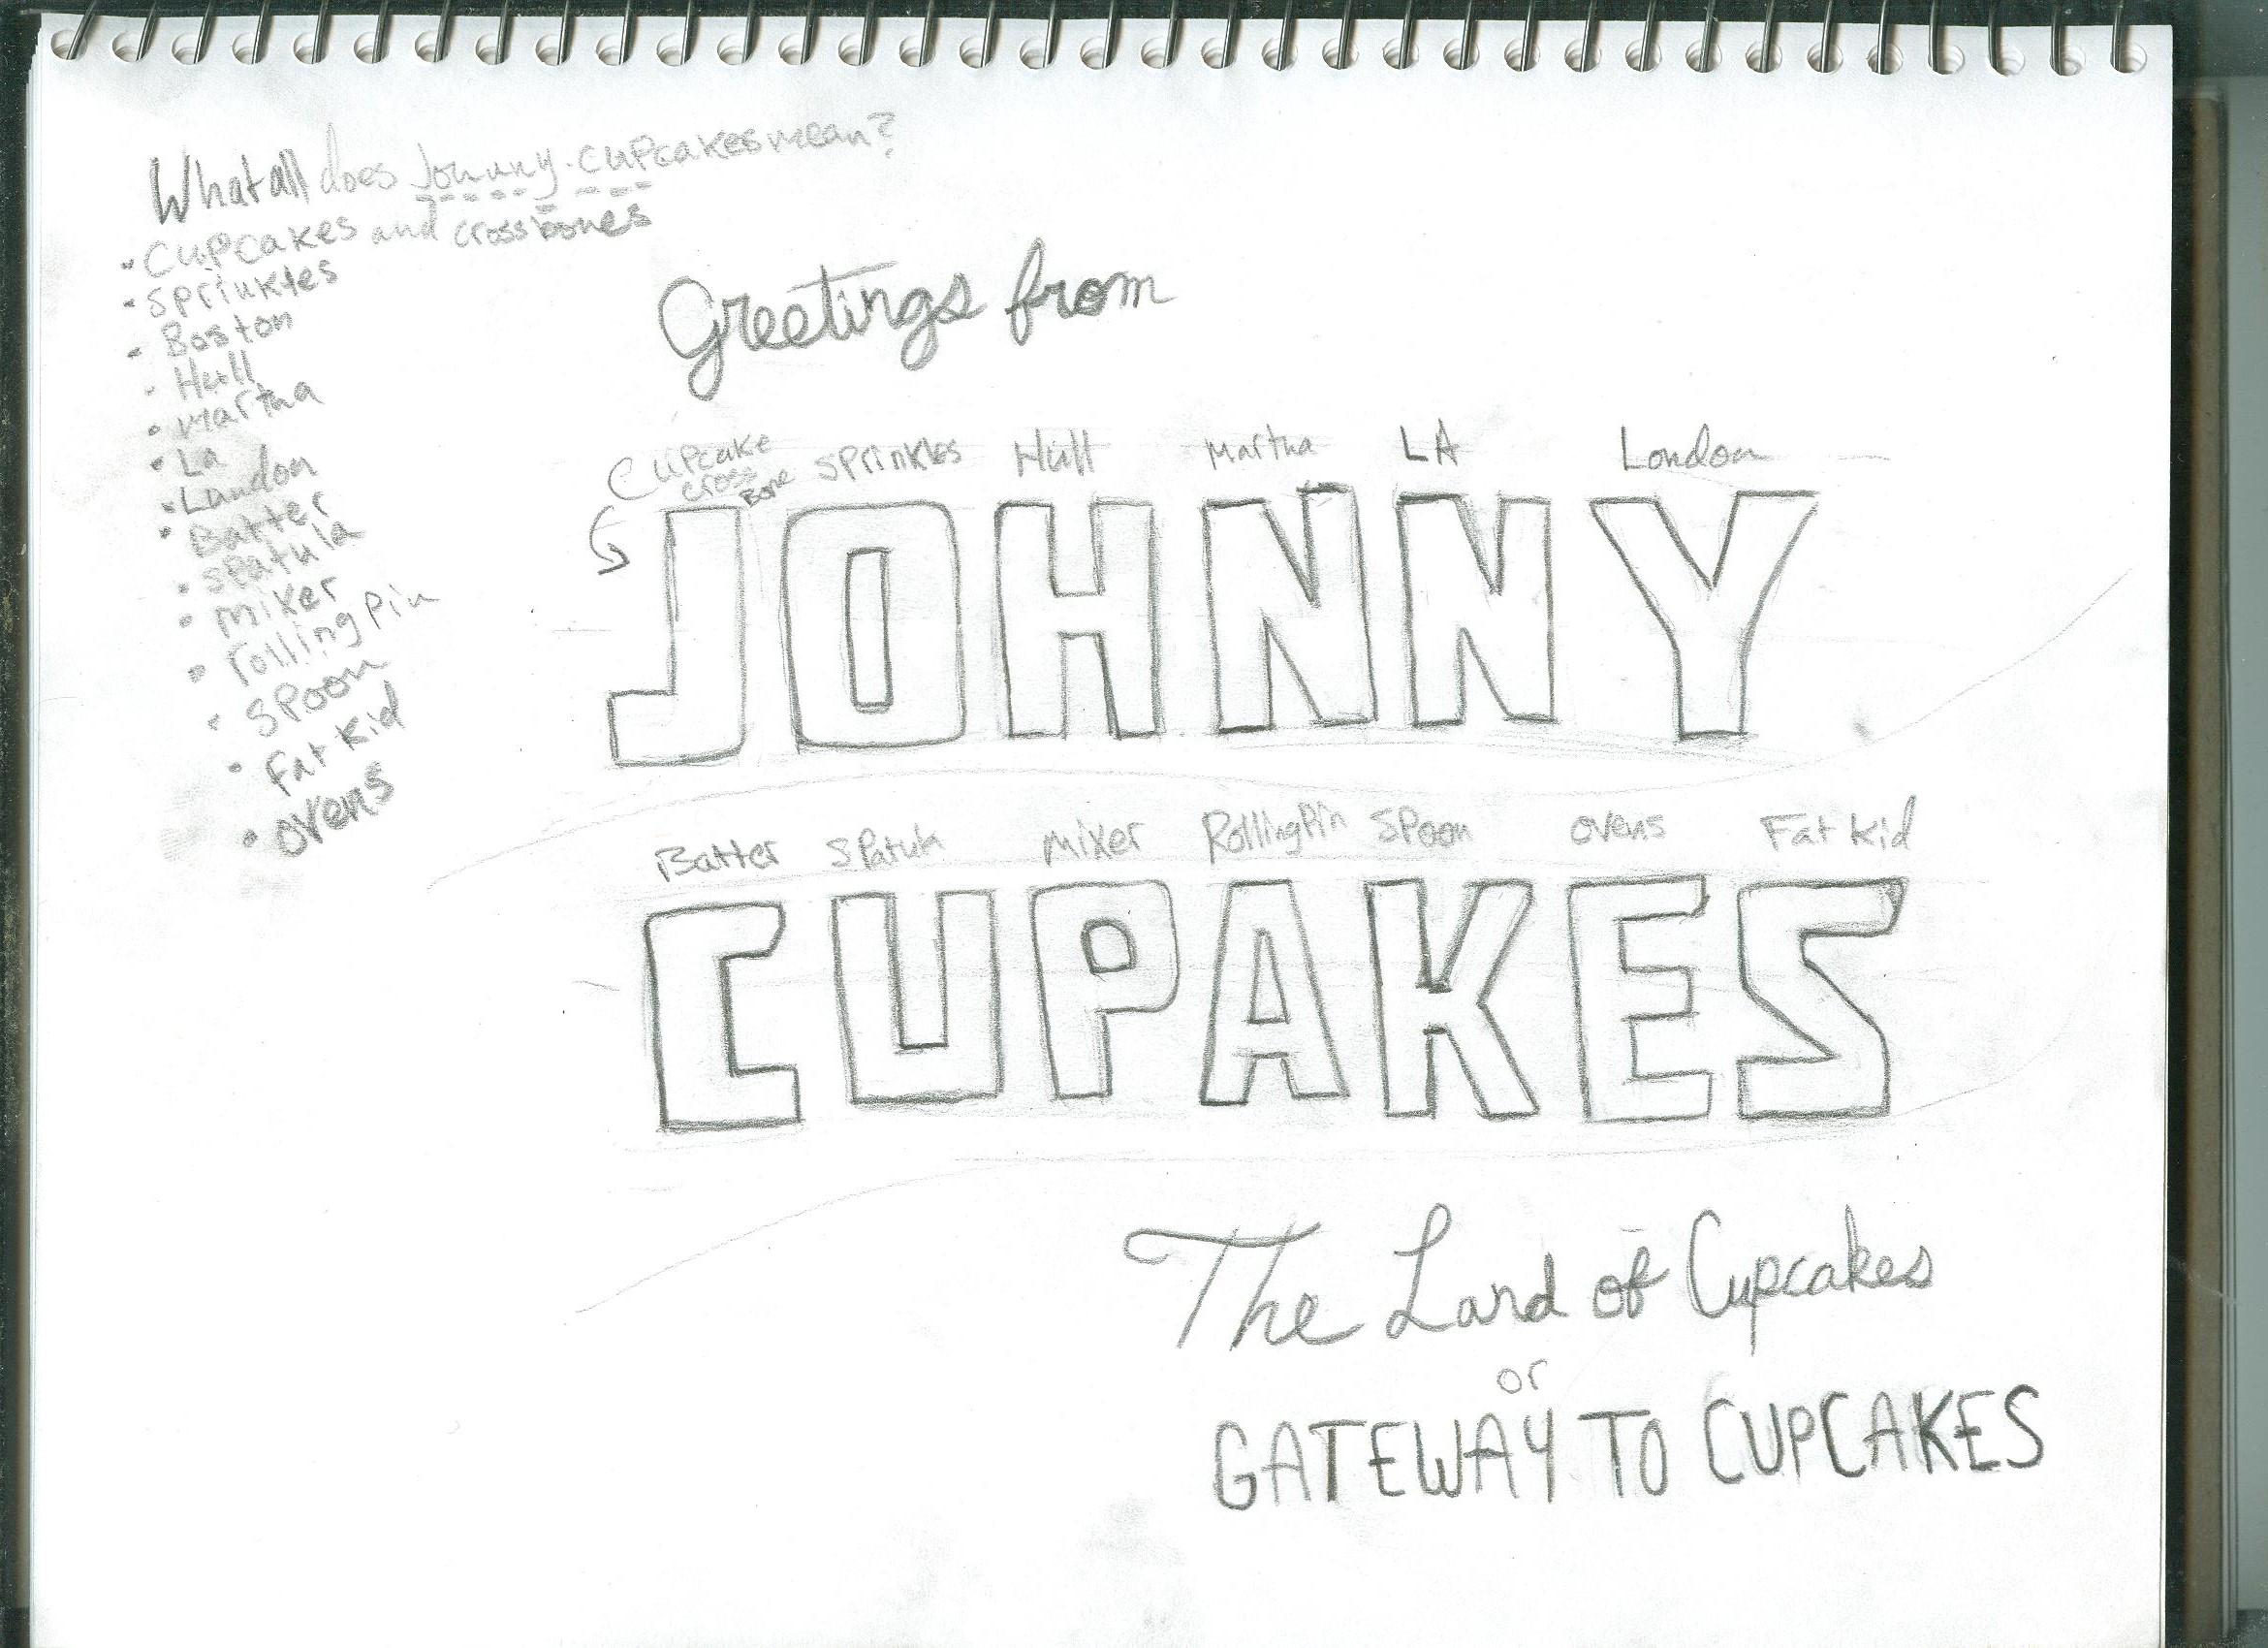 What all does Johnny Cupcakes mean?
• Cupcakes and crossbones
• Sprinkles
• Boston
• Hull
• Martha
• La
• London
• Batter
• Spatula
• Mixer
• rolling pin
• Spoon
• Fat Kid
• ovens
Greetings from
Cupcake Cross Bone Sprinkles Hull Martha LA London
JOHNNY
Batter Spatula Mixer Rolling Pin Spoon ovens Fat Kid
CUPAKES
The Land of Cupcakes
or
GATEWAY TO CUPCAKES